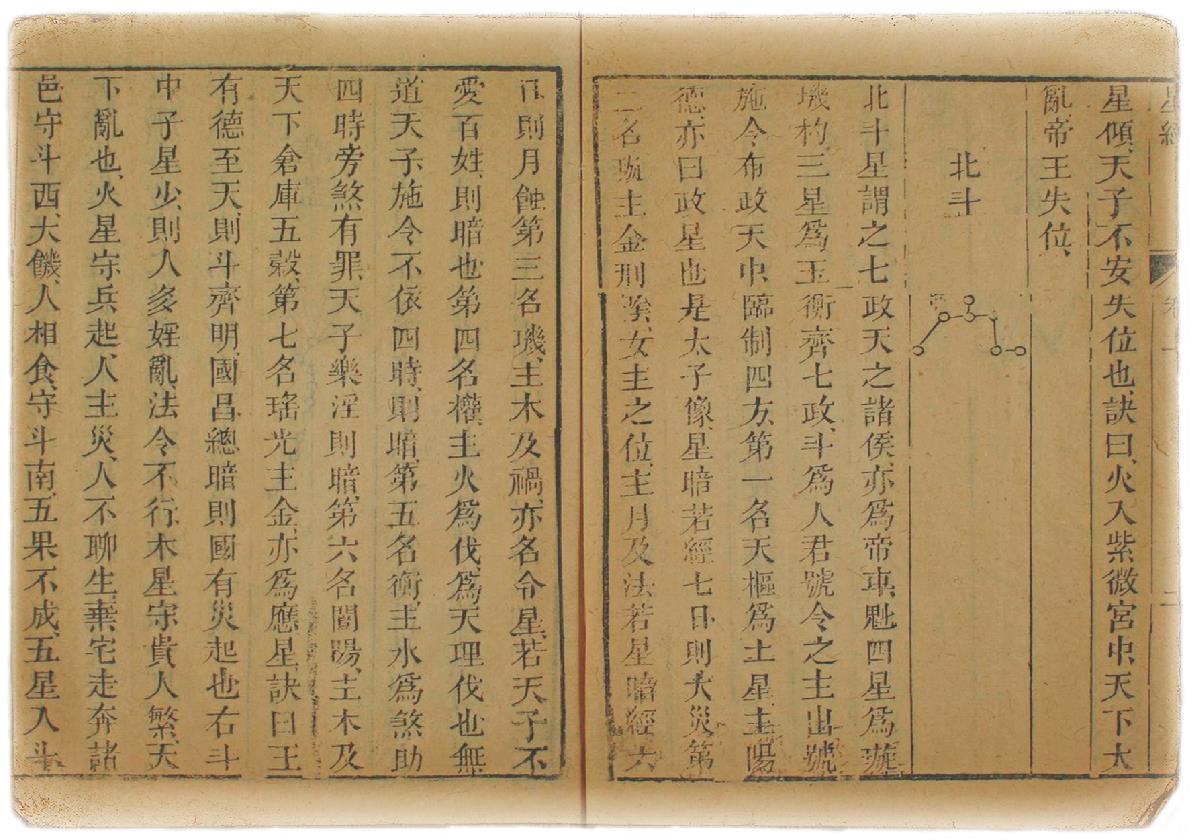 星經 卷上 二
星傾、天子不安失位也、訣曰、火入紫微宮中、天下大
亂、帝王失位、
北斗
北斗星謂之七政天之諸侯、亦爲帝車、魁四星爲璇
璣、杓三星爲玉衡齊七政、斗爲人君號令之主出號
施令布政天中、臨制四方、第一名天樞爲土星主陽
德、亦曰政星也是太子像、星暗若經七日、則大災第
二名璇主金刑、女主之位、主月及法若星暗經六
日則月蝕第三名璣、主木及禍、亦名令星、若天子不
愛百姓、則暗也第四名權、主火爲伐爲天理伐也無
道天子、施令不依四時、則暗、第五名衡、主水爲煞助
四時旁煞有罪、天子樂淫則暗、第六名闓陽、主木及
天下倉庫五榖、第七名瑤光主金、亦爲應星、訣曰王
有德至天、則斗齊明、國昌總暗則國有災起也右斗
中子星少、則人多婬亂法令不行、木星守貴人繁、天
下亂也、火星守兵起人主災、人不聊生、棄宅走奔諸
邑守斗西、大饑、人相食、守斗南、五果不成、五星入斗